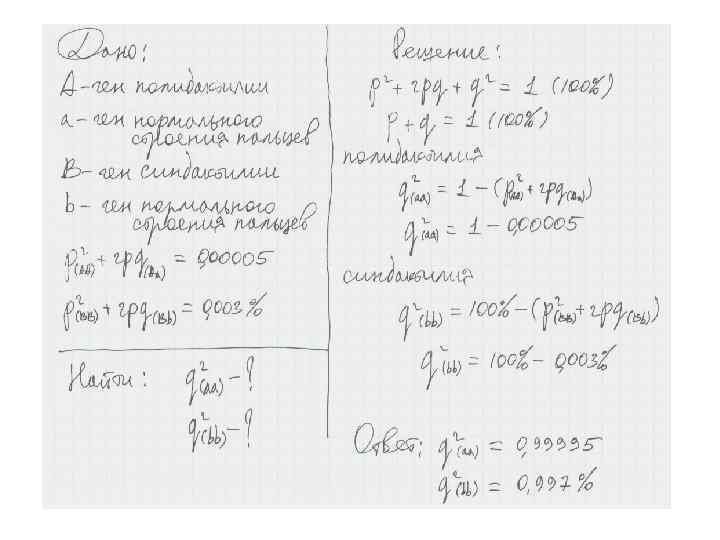 Дано:
A-ген полидактилии
a-ген нормального
строения пальцев
B-ген синдактилии
b-ген нормального
строения пальцев
p²(AA) + 2pq(Aa) = 0,00005
p²(BB) + 2pq(Bb) = 0,003%
Найти: q²(aa) - ?
q²(bb) - ?
Решение:
p² + 2pq + q² = 1 (100%)
p + q = 1 (100%)
полидактилия
q²(aa) = 1 - (p²(AA) + 2pq(Aa))
q²(aa) = 1 - 0,00005
синдактилия
q²(bb) = 100% - (p²(BB) + 2pq(Bb))
q²(bb) = 100% - 0,003%
Ответ: q²(aa) = 0,99995
q²(bb) = 0,997%